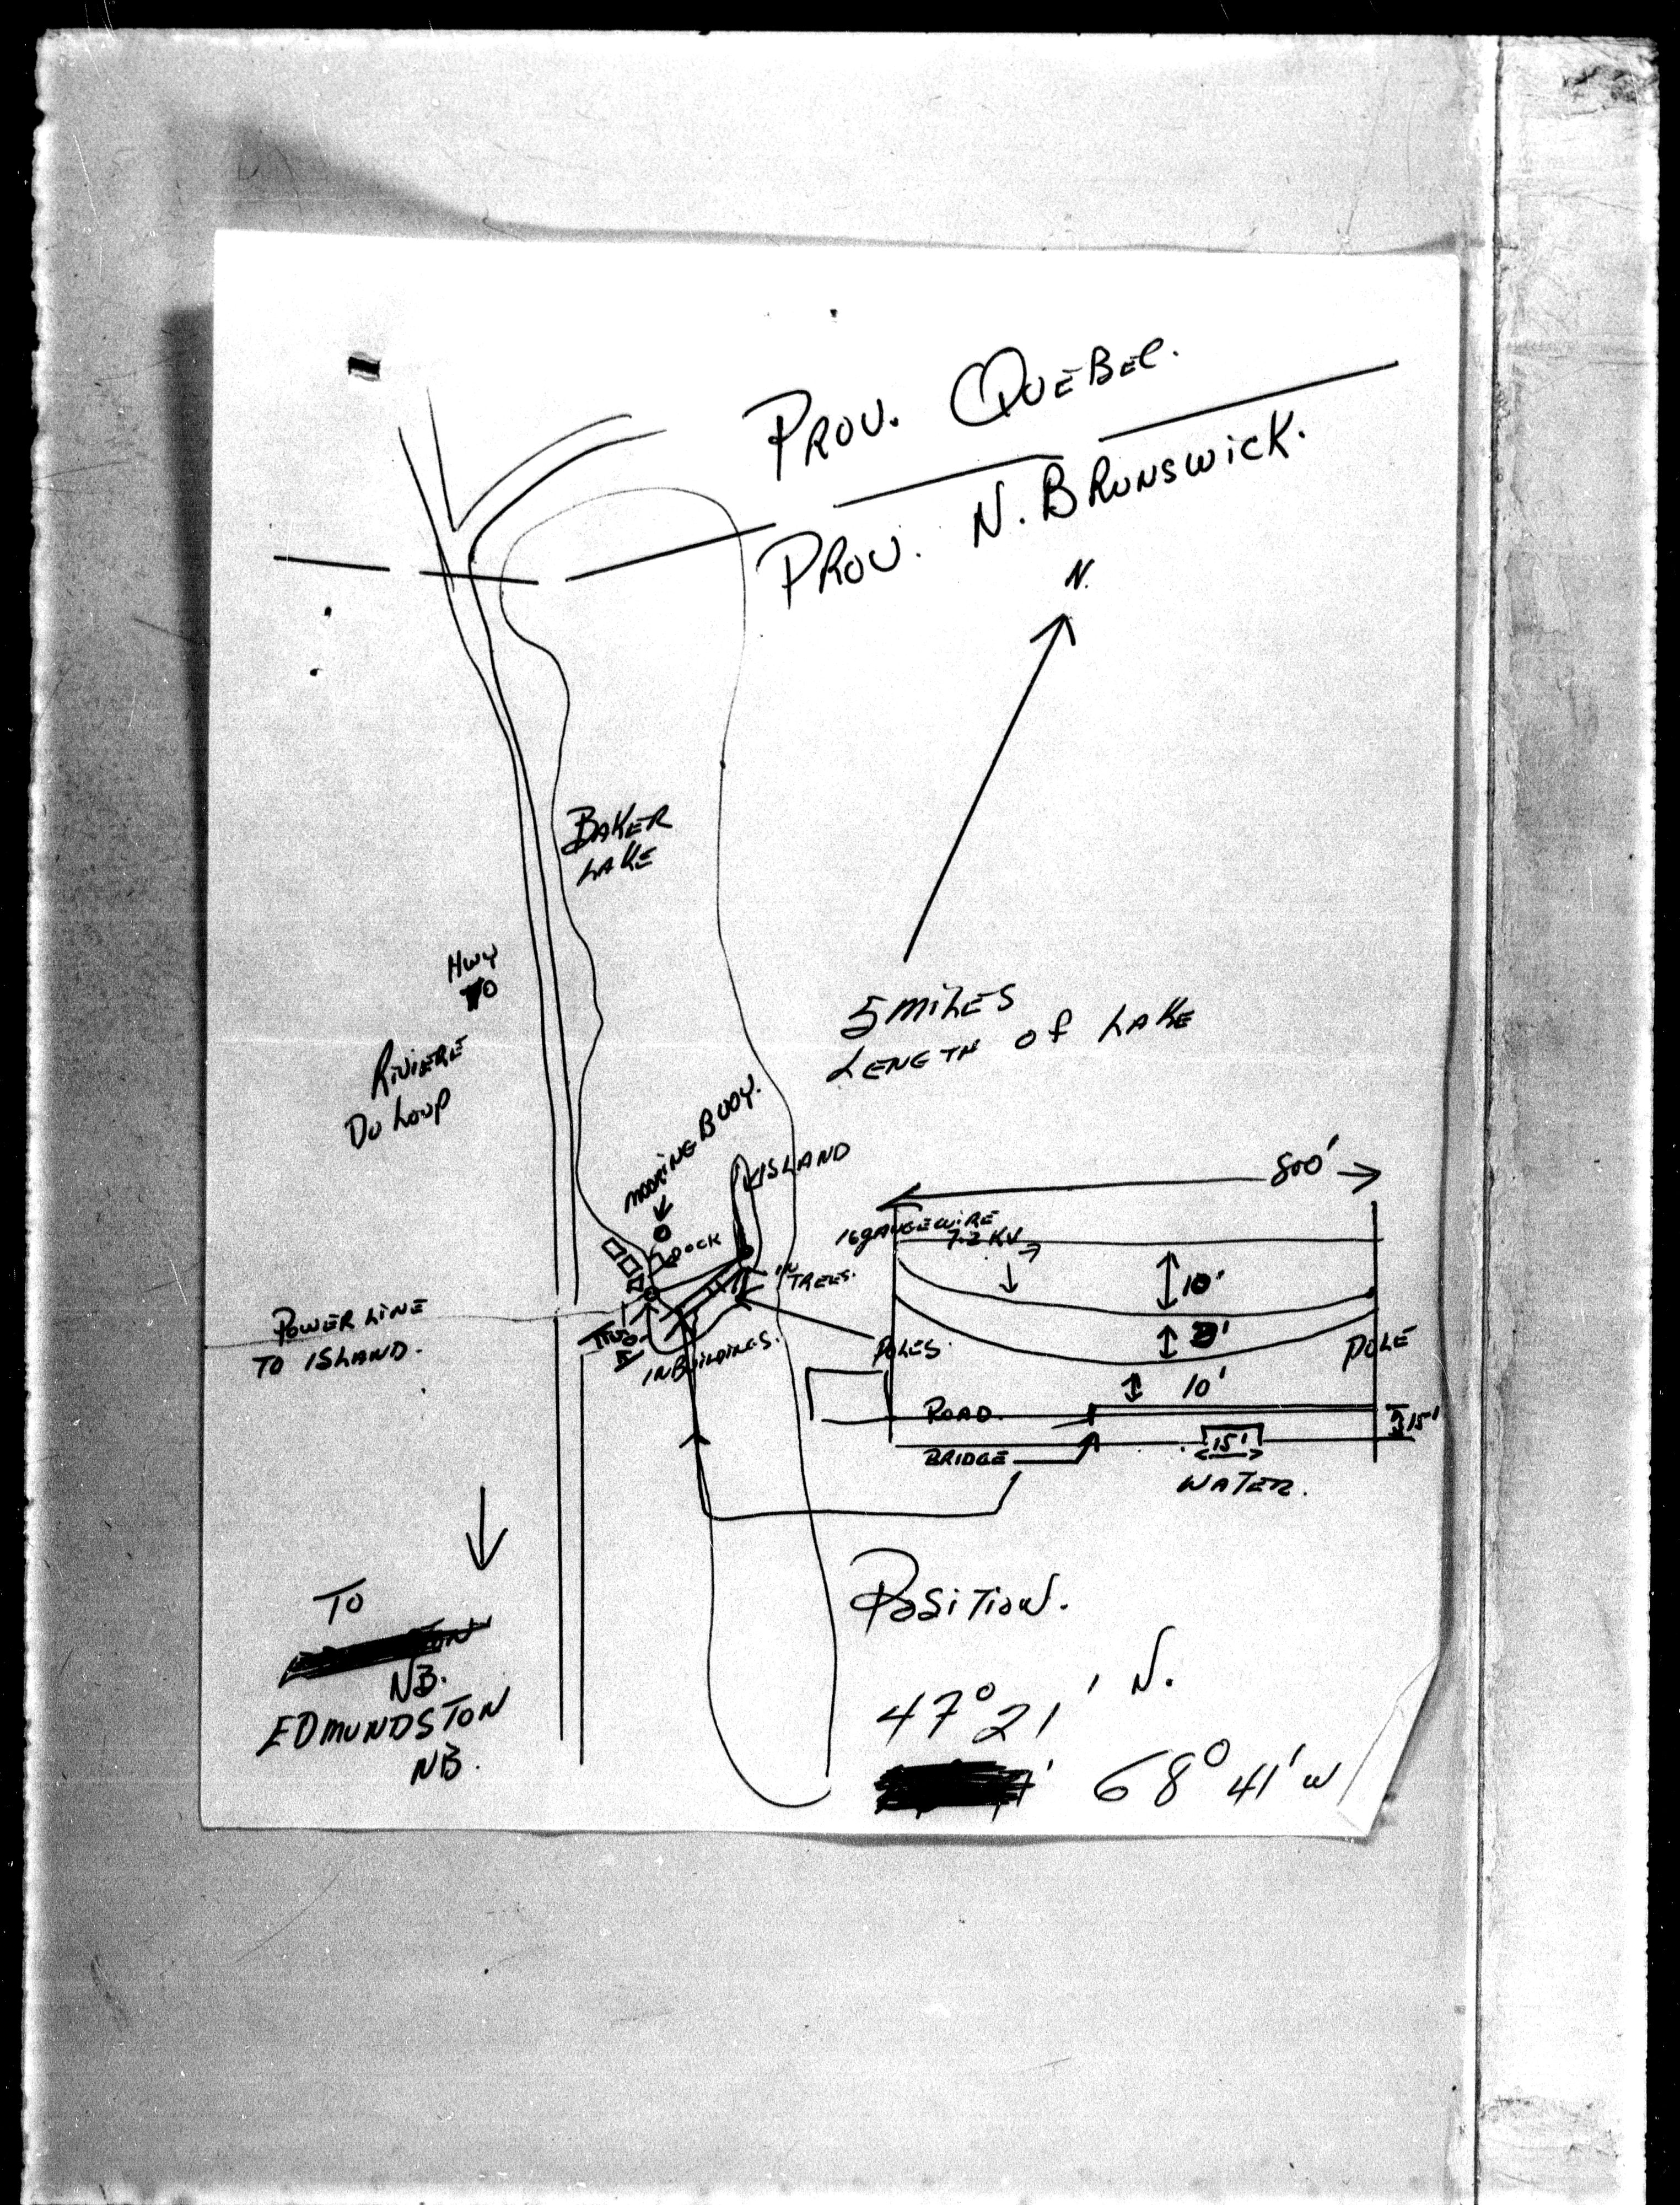 PROV. QUEBEC.
PROV. N. BRUNSWICK.
N.
BAKER
LAKE
HWY
TO
RIVIERE
DU LOUP
5 MILES
LENGTH OF LAKE
MOORING BUOY.
ISLAND
DOCK
IN
TREES.
POWER LINE
TO ISLAND.
IN BUILDINGS.
800'
16 GAUGE WIRE
7.2 KV
10'
POLES.
POLE
10'
ROAD.
15'
BRIDGE
15'
WATER.
TO
NB.
EDMUNDSTON
NB.
POSITION.
47° 21' N.
68° 41' W